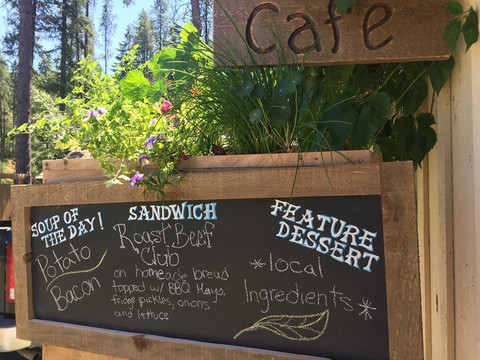 Cafe
SOUP OF
THE DAY!
Potato
Bacon
SANDWICH
Roast Beef
Club
on homeade bread
topped w/ BBQ Mayo,
fridge pickles, onions
and lettuce
FEATURE
DESSERT
*local
Ingredients*